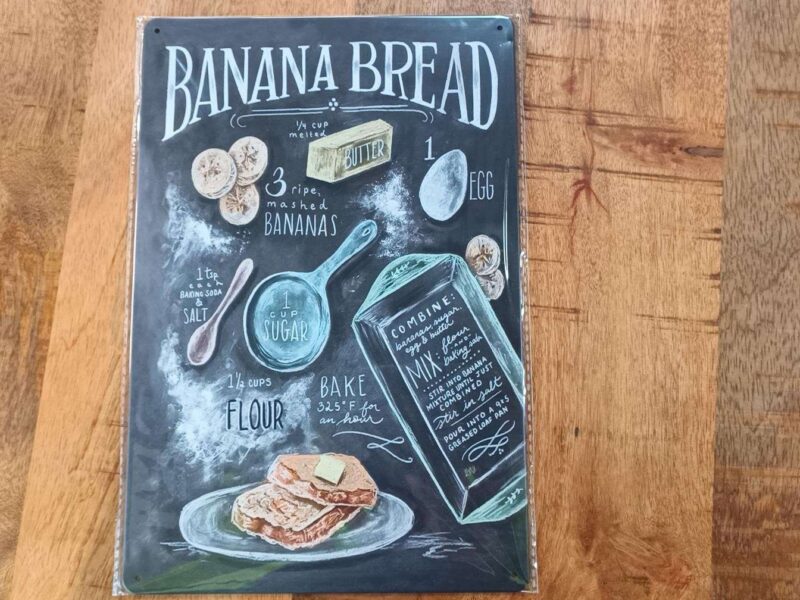 BANANA BREAD
1/4 CUP
melted
BUTTER
1
EGG
3 ripe,
mashed
BANANAS
1 tsp
each
BAKING SODA
&
SALT
1
CUP
SUGAR
1 1/2 CUPS
FLOUR
BAKE
325°F for
an hour
COMBINE:
bananas, sugar,
egg & butter
MIX: flour
AND
baking soda
STIR INTO BANANA
MIXTURE UNTIL JUST
COMBINED
stir in salt
POUR INTO A 9x5
GREASED LOAF PAN